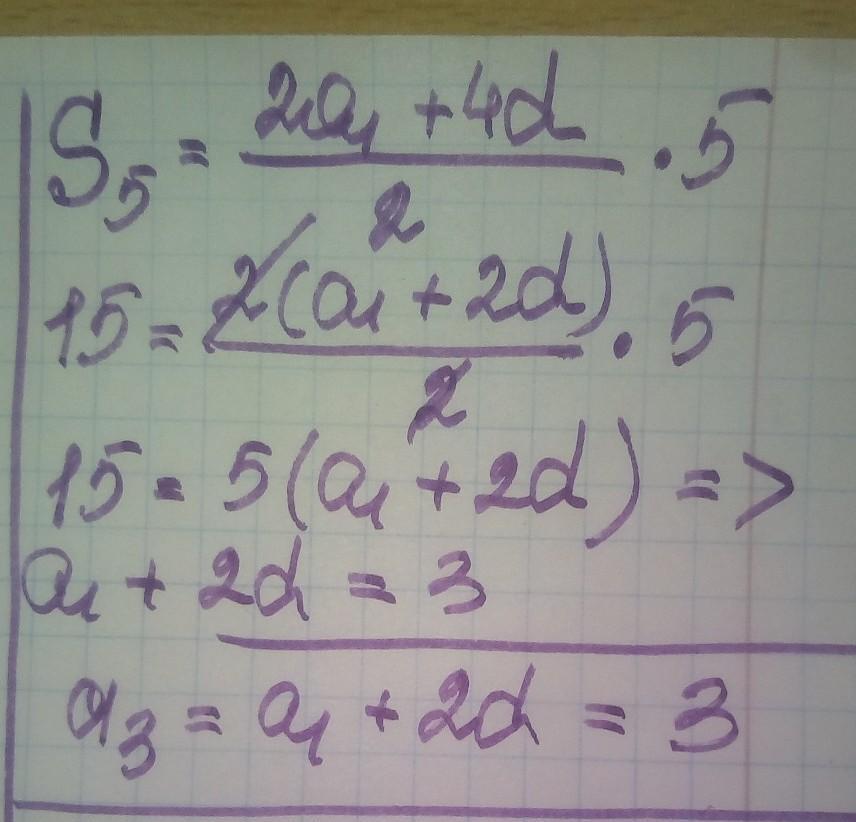 S₅ = (2a₁ + 4d)/2 · 5
15 = 2(a₁ + 2d)/2 · 5
15 = 5(a₁ + 2d) =>
a₁ + 2d = 3
a₃ = a₁ + 2d = 3